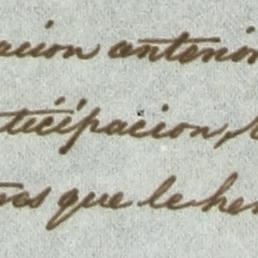 acion anterior
nticipacion,
nos que le hen